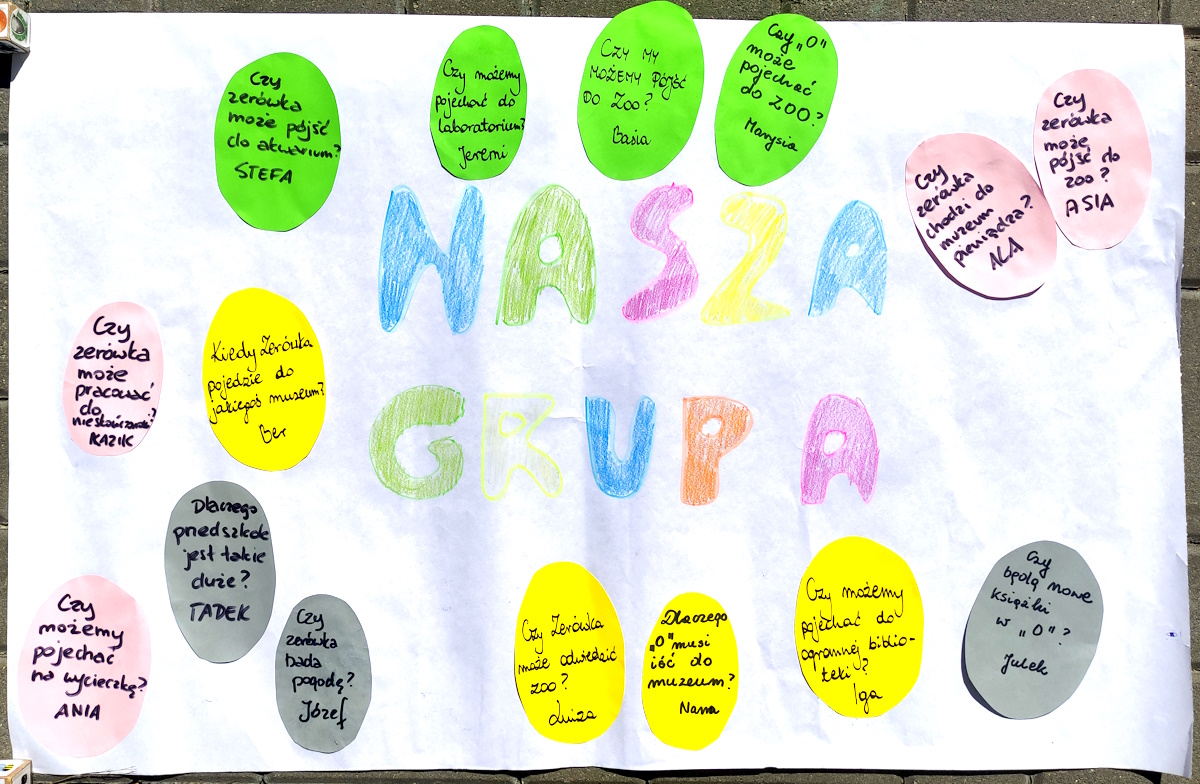 Czy
zerówka
może pójść
do akwarium?
STEFA
Czy możemy
pojechać do
laboratorium?
Jeremi
CZY MY
MOŻEMY PÓJŚĆ
DO ZOO?
Basia
Czy „O"
może
pojechać
do ZOO?
Marysia
Czy
zerówka
chodzi do
muzeum
pieniądza?
ALA
Czy
zerówka
może
pójść do
zoo?
ASIA
NASZA
GRUPA
Czy
zerówka
może
pracować
do
KAZIK
Kiedy Zerówka
pojedzie do
jakiegoś muzeum?
Ber
Dlaczego
przedszkole
jest takie
duże?
TADEK
Czy
możemy
pojechać
na wycieczkę?
ANIA
Czy
zerówka
bada
pogodę?
Józef
Czy Zerówka
może odwiedzić
zoo?
Luiza
Dlaczego
„O" musi
iść do
muzeum?
Nana
Czy możemy
pojechać do
ogromnej biblio-
teki?
Iga
Czy
będą nowe
książki
w „O"?
Julek